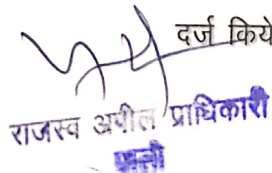 दर्ज किये
राजस्व अपील प्राधिकारी
पाली